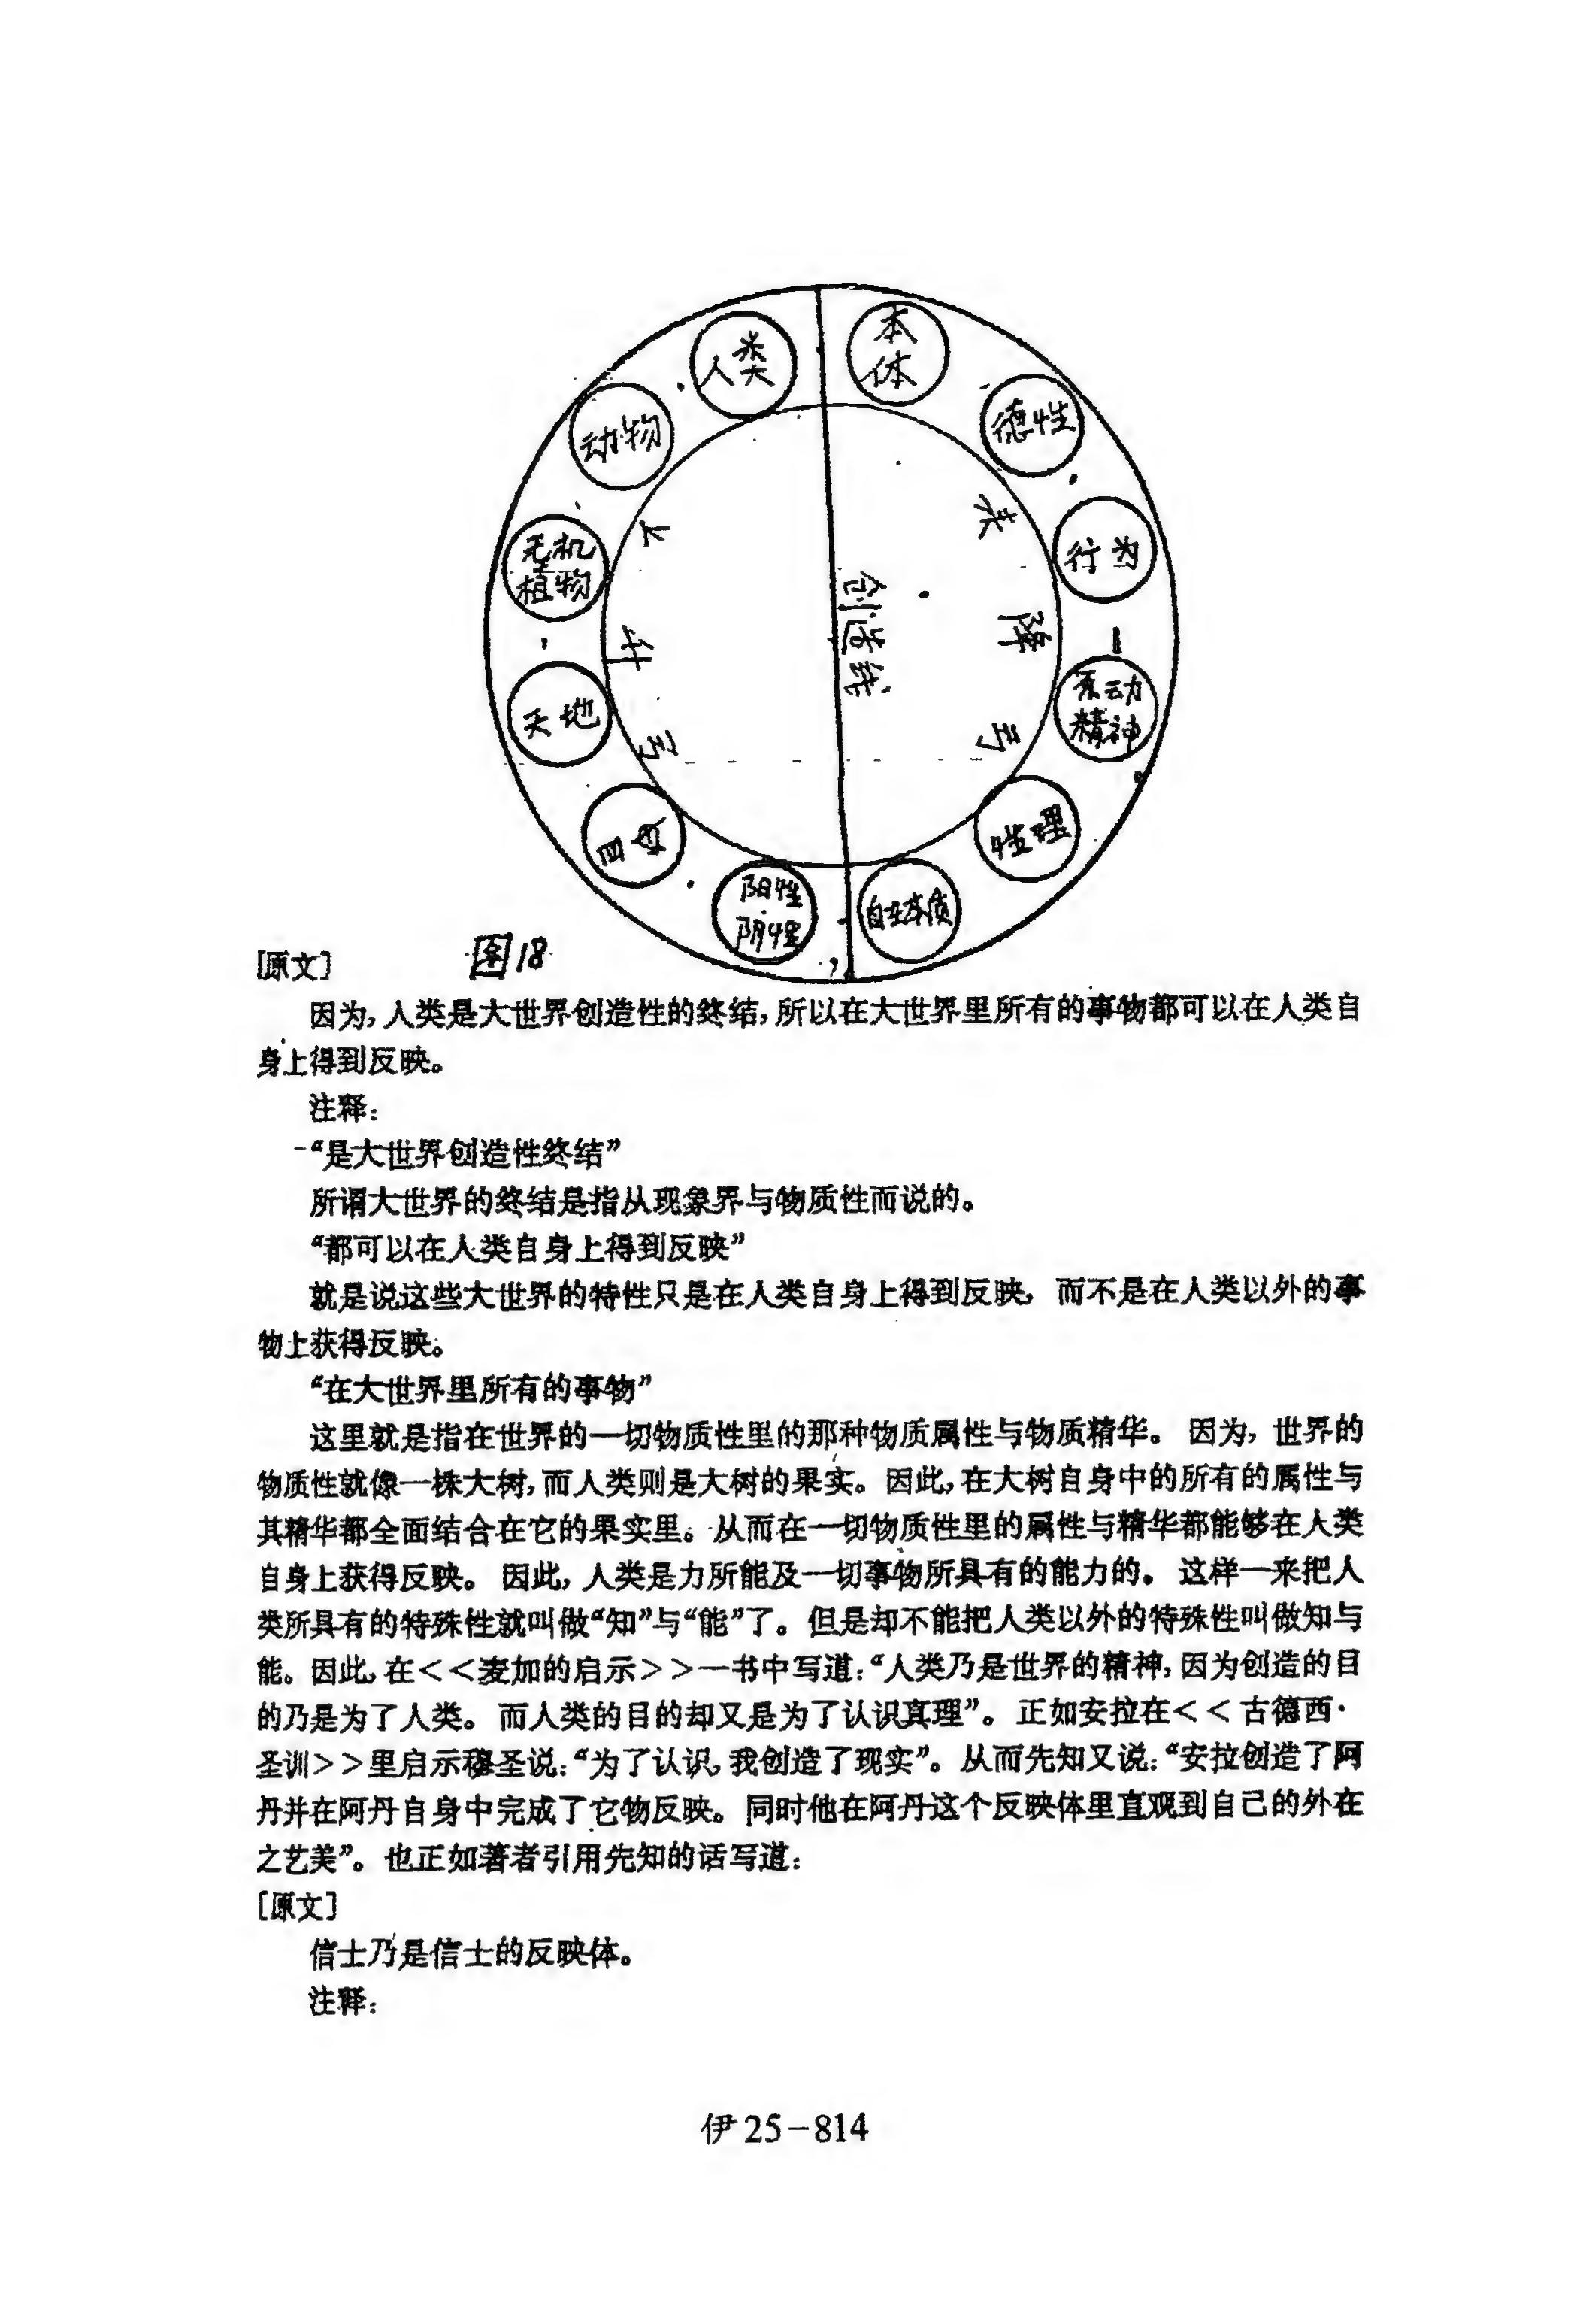 人类
本体
动物
德性
无机
植物
行为
天地
原动
精神
四母
性理
阳性
阴性
自在本质
来降弓
上升弓
创造线
[原文]
图18
因为,人类是大世界创造性的终结,所以在大世界里所有的事物都可以在人类自
身上得到反映。
注释:
“是大世界创造性终结”
所谓大世界的终结是指从现象界与物质性而说的。
“都可以在人类自身上得到反映”
就是说这些大世界的特性只是在人类自身上得到反映,而不是在人类以外的事
物上获得反映。
“在大世界里所有的事物”
这里就是指在世界的一切物质性里的那种物质属性与物质精华。因为,世界的
物质性就像一株大树,而人类则是大树的果实。因此,在大树自身中的所有的属性与
其精华都全面结合在它的果实里。从而在一切物质性里的属性与精华都能够在人类
自身上获得反映。因此,人类是力所能及一切事物所具有的能力的。这样一来把人
类所具有的特殊性就叫做“知”与“能”了。但是却不能把人类以外的特殊性叫做知与
能。因此,在<<麦加的启示>>一书中写道:“人类乃是世界的精神,因为创造的目
的乃是为了人类。而人类的目的却又是为了认识真理”。正如安拉在<<古德西·
圣训>>里启示穆圣说:“为了认识,我创造了现实”。从而先知又说:“安拉创造了阿
丹并在阿丹自身中完成了它物反映。同时他在阿丹这个反映体里直观到自己的外在
之艺美”。也正如著者引用先知的话写道:
[原文]
信士乃是信士的反映体。
注释:
伊25-814